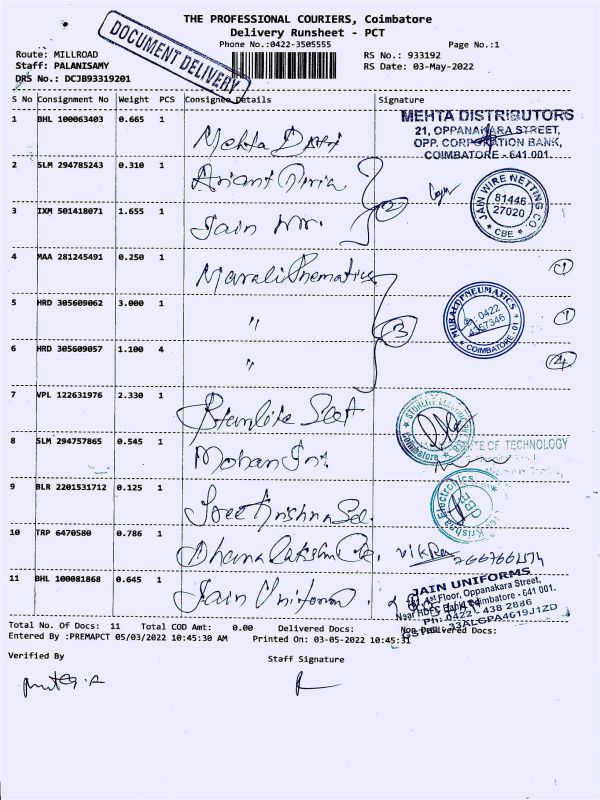 THE PROFESSIONAL COURIERS, Coimbatore
Delivery Runsheet - PCT
DOCUMENT DELIVERY
Phone No.:0422-3505555
Page No.:1
Route: MILLROAD
RS No.: 933192
Staff: PALANISAMY
RS Date: 03-May-2022
DRS No.: DCJB93319201
S No Consignment No Weight PCS Consignee Details Signature
1 BHL 100063403 0.665 1
MEHTA DISTRIBUTORS
21, OPPANAKARA STREET,
OPP. CORPORATION BANK,
COIMBATORE - 641 001.
Mehta Distri
2 SLM 294785243 0.310 1
2
JAIN WIRE NETTING CO
81446
27020
* CBE *
3 IXM 501418071 1.655 1
Jain
4 MAA 281245491 0.250 1 1
Murali Pnematics
5 HRD 305609062 3.000 1 1
"
3
MURALI PNEUMATICS
0422
4367346
* COIMBATORE - 01 *
6 HRD 305609057 1.100 4 4
"
7 VPL 122631976 2.330 1
Starlite
Coimbatore
8 SLM 294757865 0.545 1
Mohan Int
TE OF TECHNOLOGY
9 BLR 2201531712 0.125 1
Sree Krishna
Krishna Electronics
CBE
10 TRP 6470580 0.786 1
Dhana Lakshmi
11 BHL 100081868 0.645 1
Jain Uniform
JAIN UNIFORMS
1st Floor, Oppanakara Street,
Near HDFC Bank, Coimbatore - 641 001.
Ph: 0422 - 438 2886
Total No. Of Docs: 11 Total COD Amt: 0.00 Delivered Docs: Non Delivered Docs:
Entered By :PREMAPCT 05/03/2022 10:45:30 AM Printed On: 03-05-2022 10:45:31
Verified By
Staff Signature